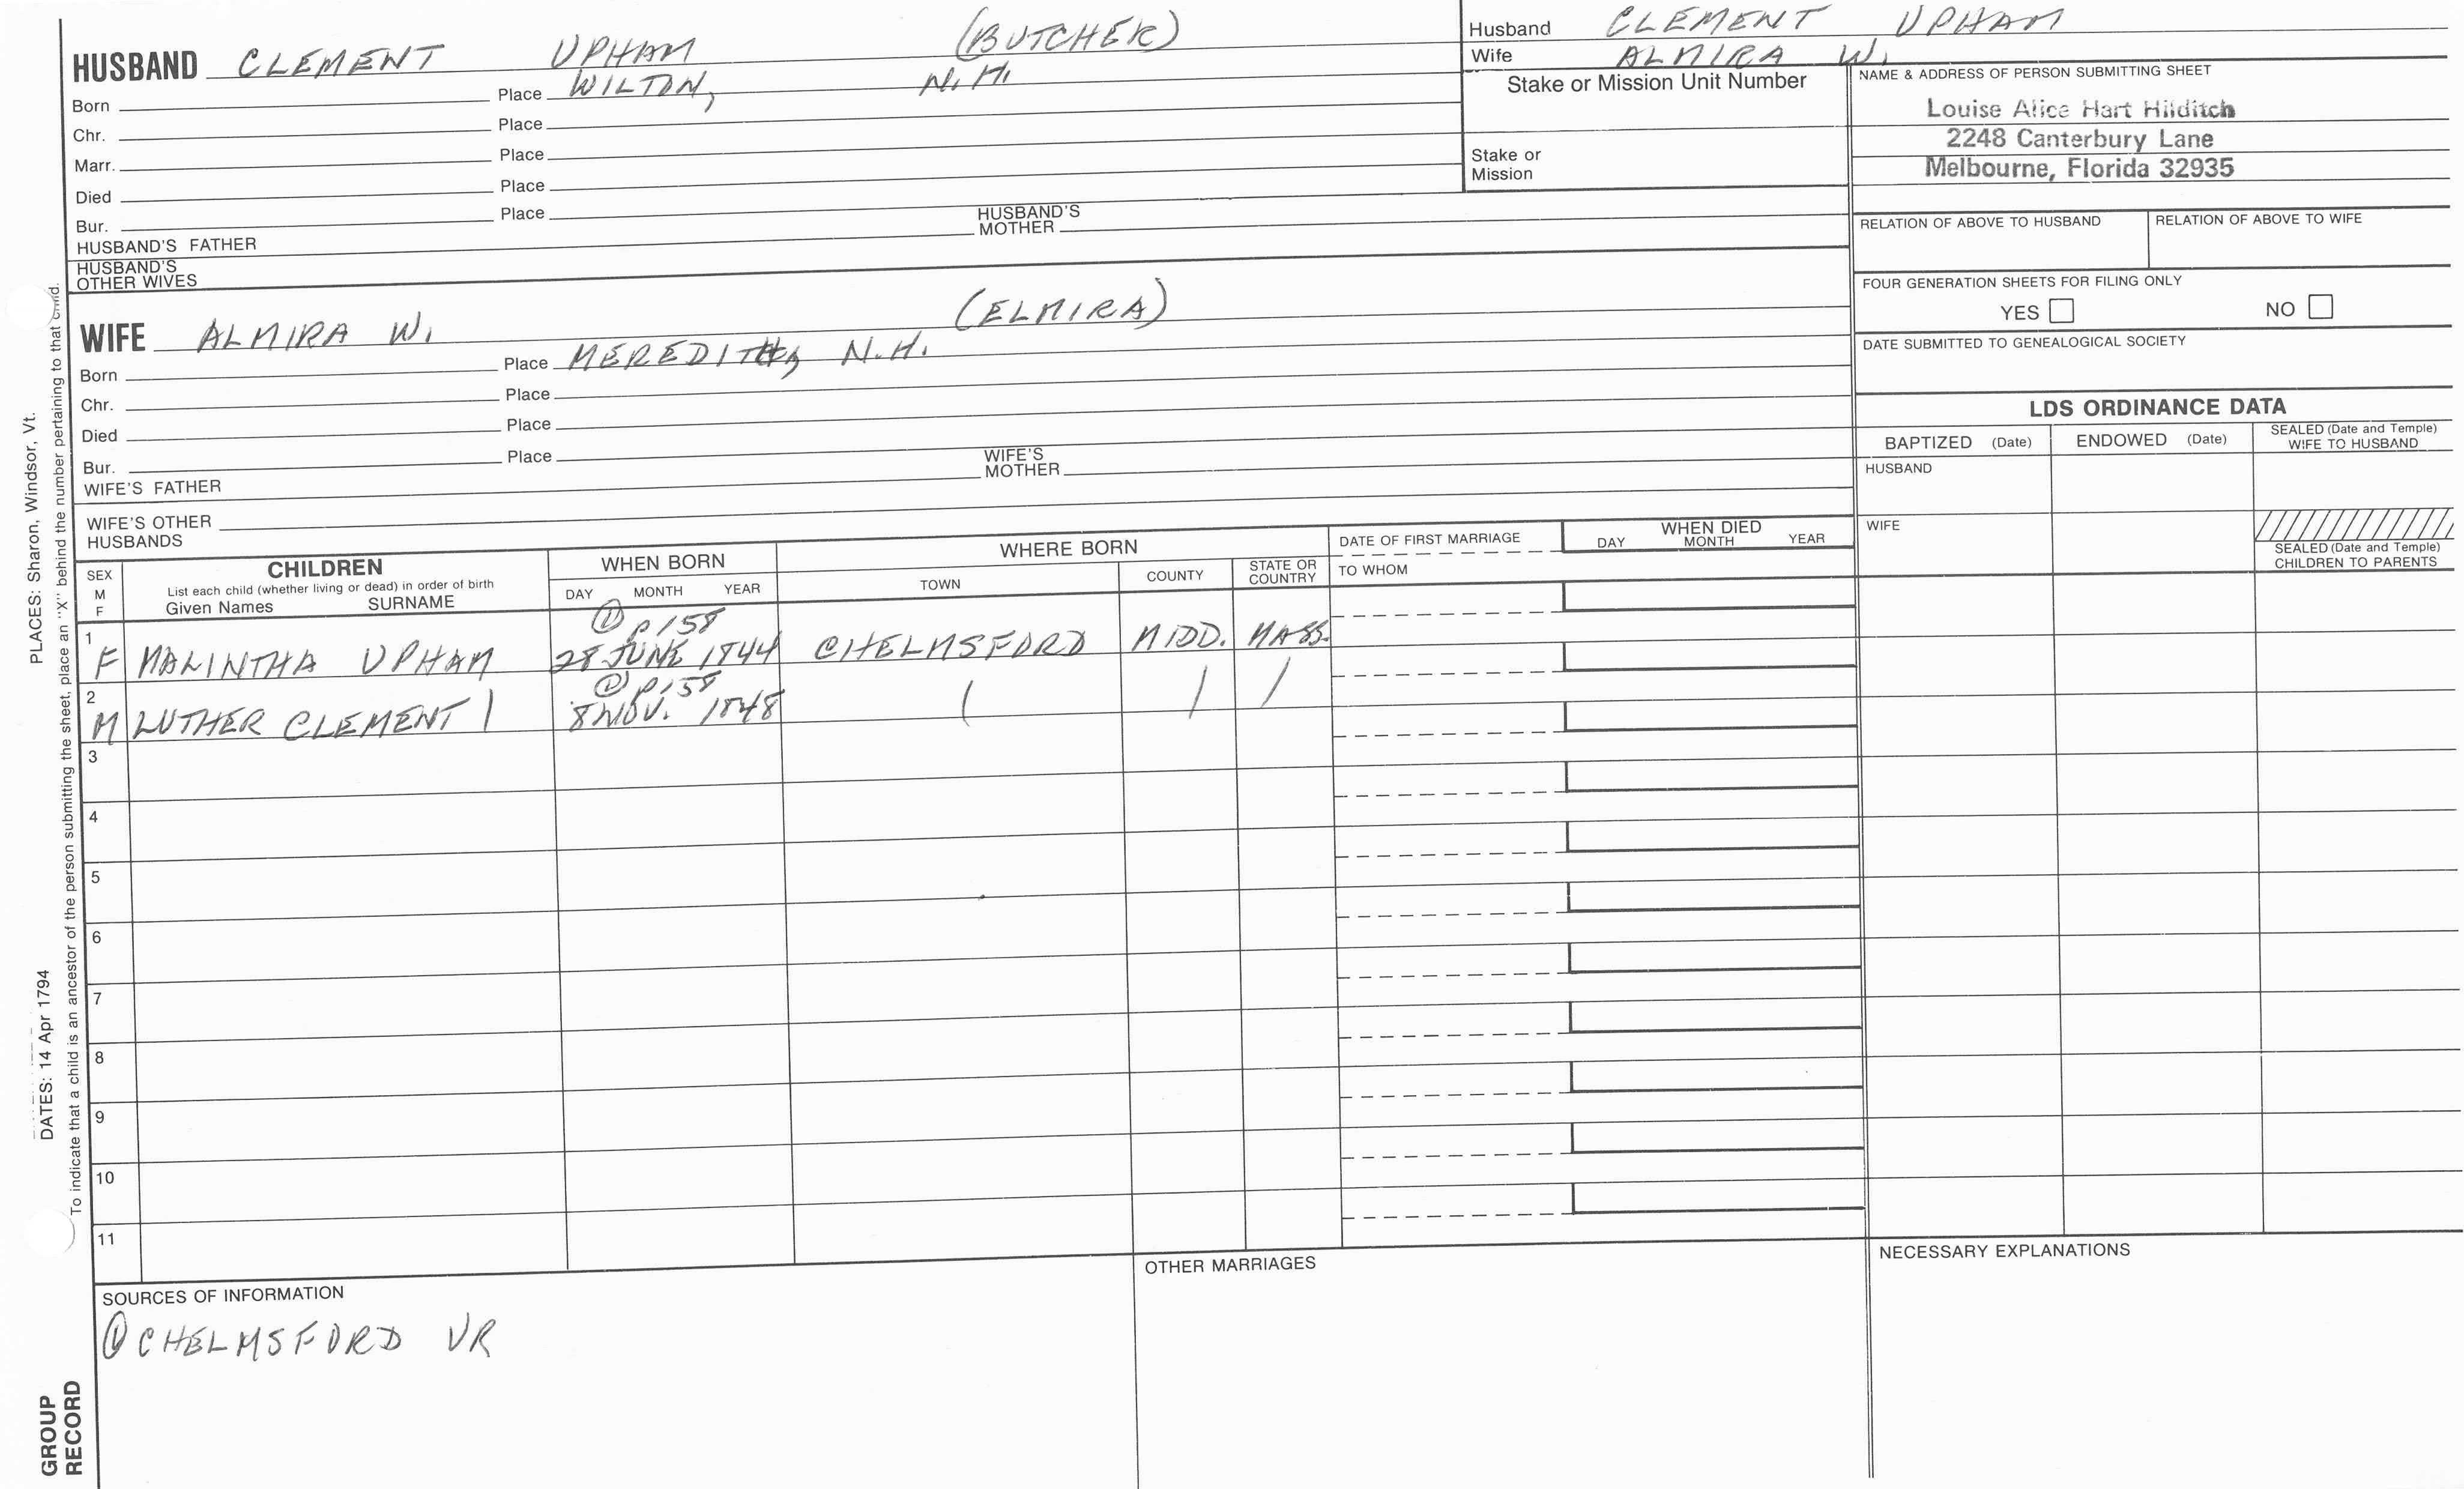 HUSBAND CLEMENT UPHAM (BUTCHER)
Born Place WILTON, N.H.
Chr. Place
Marr. Place
Died Place
Bur. Place
HUSBAND'S FATHER HUSBAND'S MOTHER
HUSBAND'S OTHER WIVES
Husband CLEMENT UPHAM
Wife ALMIRA W.
Stake or Mission Unit Number
Stake or Mission
NAME & ADDRESS OF PERSON SUBMITTING SHEET
Louise Alice Hart Hilditch
2248 Canterbury Lane
Melbourne, Florida 32935
RELATION OF ABOVE TO HUSBAND RELATION OF ABOVE TO WIFE
FOUR GENERATION SHEETS FOR FILING ONLY
YES NO
DATE SUBMITTED TO GENEALOGICAL SOCIETY
WIFE ALMIRA W. (ELMIRA)
Born Place MEREDITH, N.H.
Chr. Place
Died Place
Bur. Place
WIFE'S FATHER WIFE'S MOTHER
WIFE'S OTHER HUSBANDS
LDS ORDINANCE DATA
BAPTIZED (Date) ENDOWED (Date) SEALED (Date and Temple) WIFE TO HUSBAND
HUSBAND
WIFE
SEALED (Date and Temple) CHILDREN TO PARENTS
SEX M F
CHILDREN
List each child (whether living or dead) in order of birth
Given Names SURNAME
WHEN BORN
DAY MONTH YEAR
WHERE BORN
TOWN COUNTY STATE OR COUNTRY
DATE OF FIRST MARRIAGE
TO WHOM
WHEN DIED
DAY MONTH YEAR
① p158
1 F MALINTHA UPHAM 28 JUNE 1844 CHELMSFORD MIDD. MASS.
① p158
2 M LUTHER CLEMENT | 8 NOV. 1848 | | |
3
4
5
6
7
8
9
10
11
SOURCES OF INFORMATION
① CHELMSFORD VR
OTHER MARRIAGES
NECESSARY EXPLANATIONS
PLACES: Sharon, Windsor, Vt.
DATES: 14 Apr 1794
To indicate that a child is an ancestor of the person submitting the sheet, place an "X" behind the number pertaining to that child.
GROUP RECORD